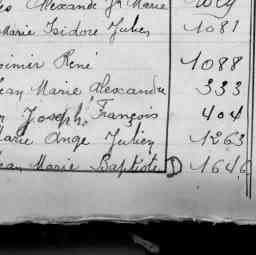 Alexandre Jn Marie
Marie Isidore Julien 1081
René 1088
Jean Marie Alexandre 333
Joseph François 404
Marie Ange Julien 1263
Jean Marie Baptiste D 1646